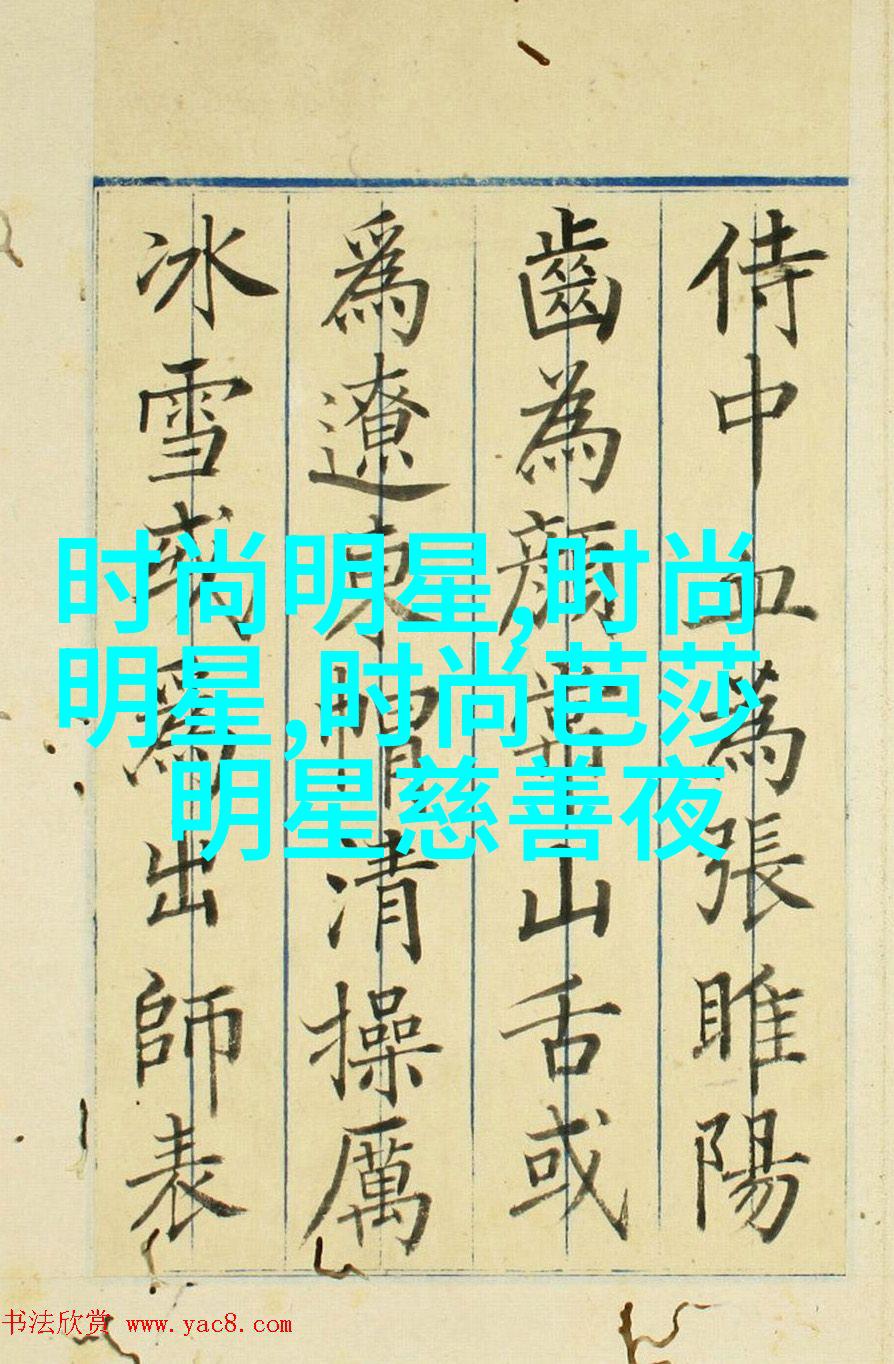 时尚明星,时尚
明星,时尚芭莎
明星慈善夜
侍中血為張睢陽
齒為顏常山舌或
爲遼東帽清操厲
冰雪或爲出師表
书法欣赏 www.yac8.com